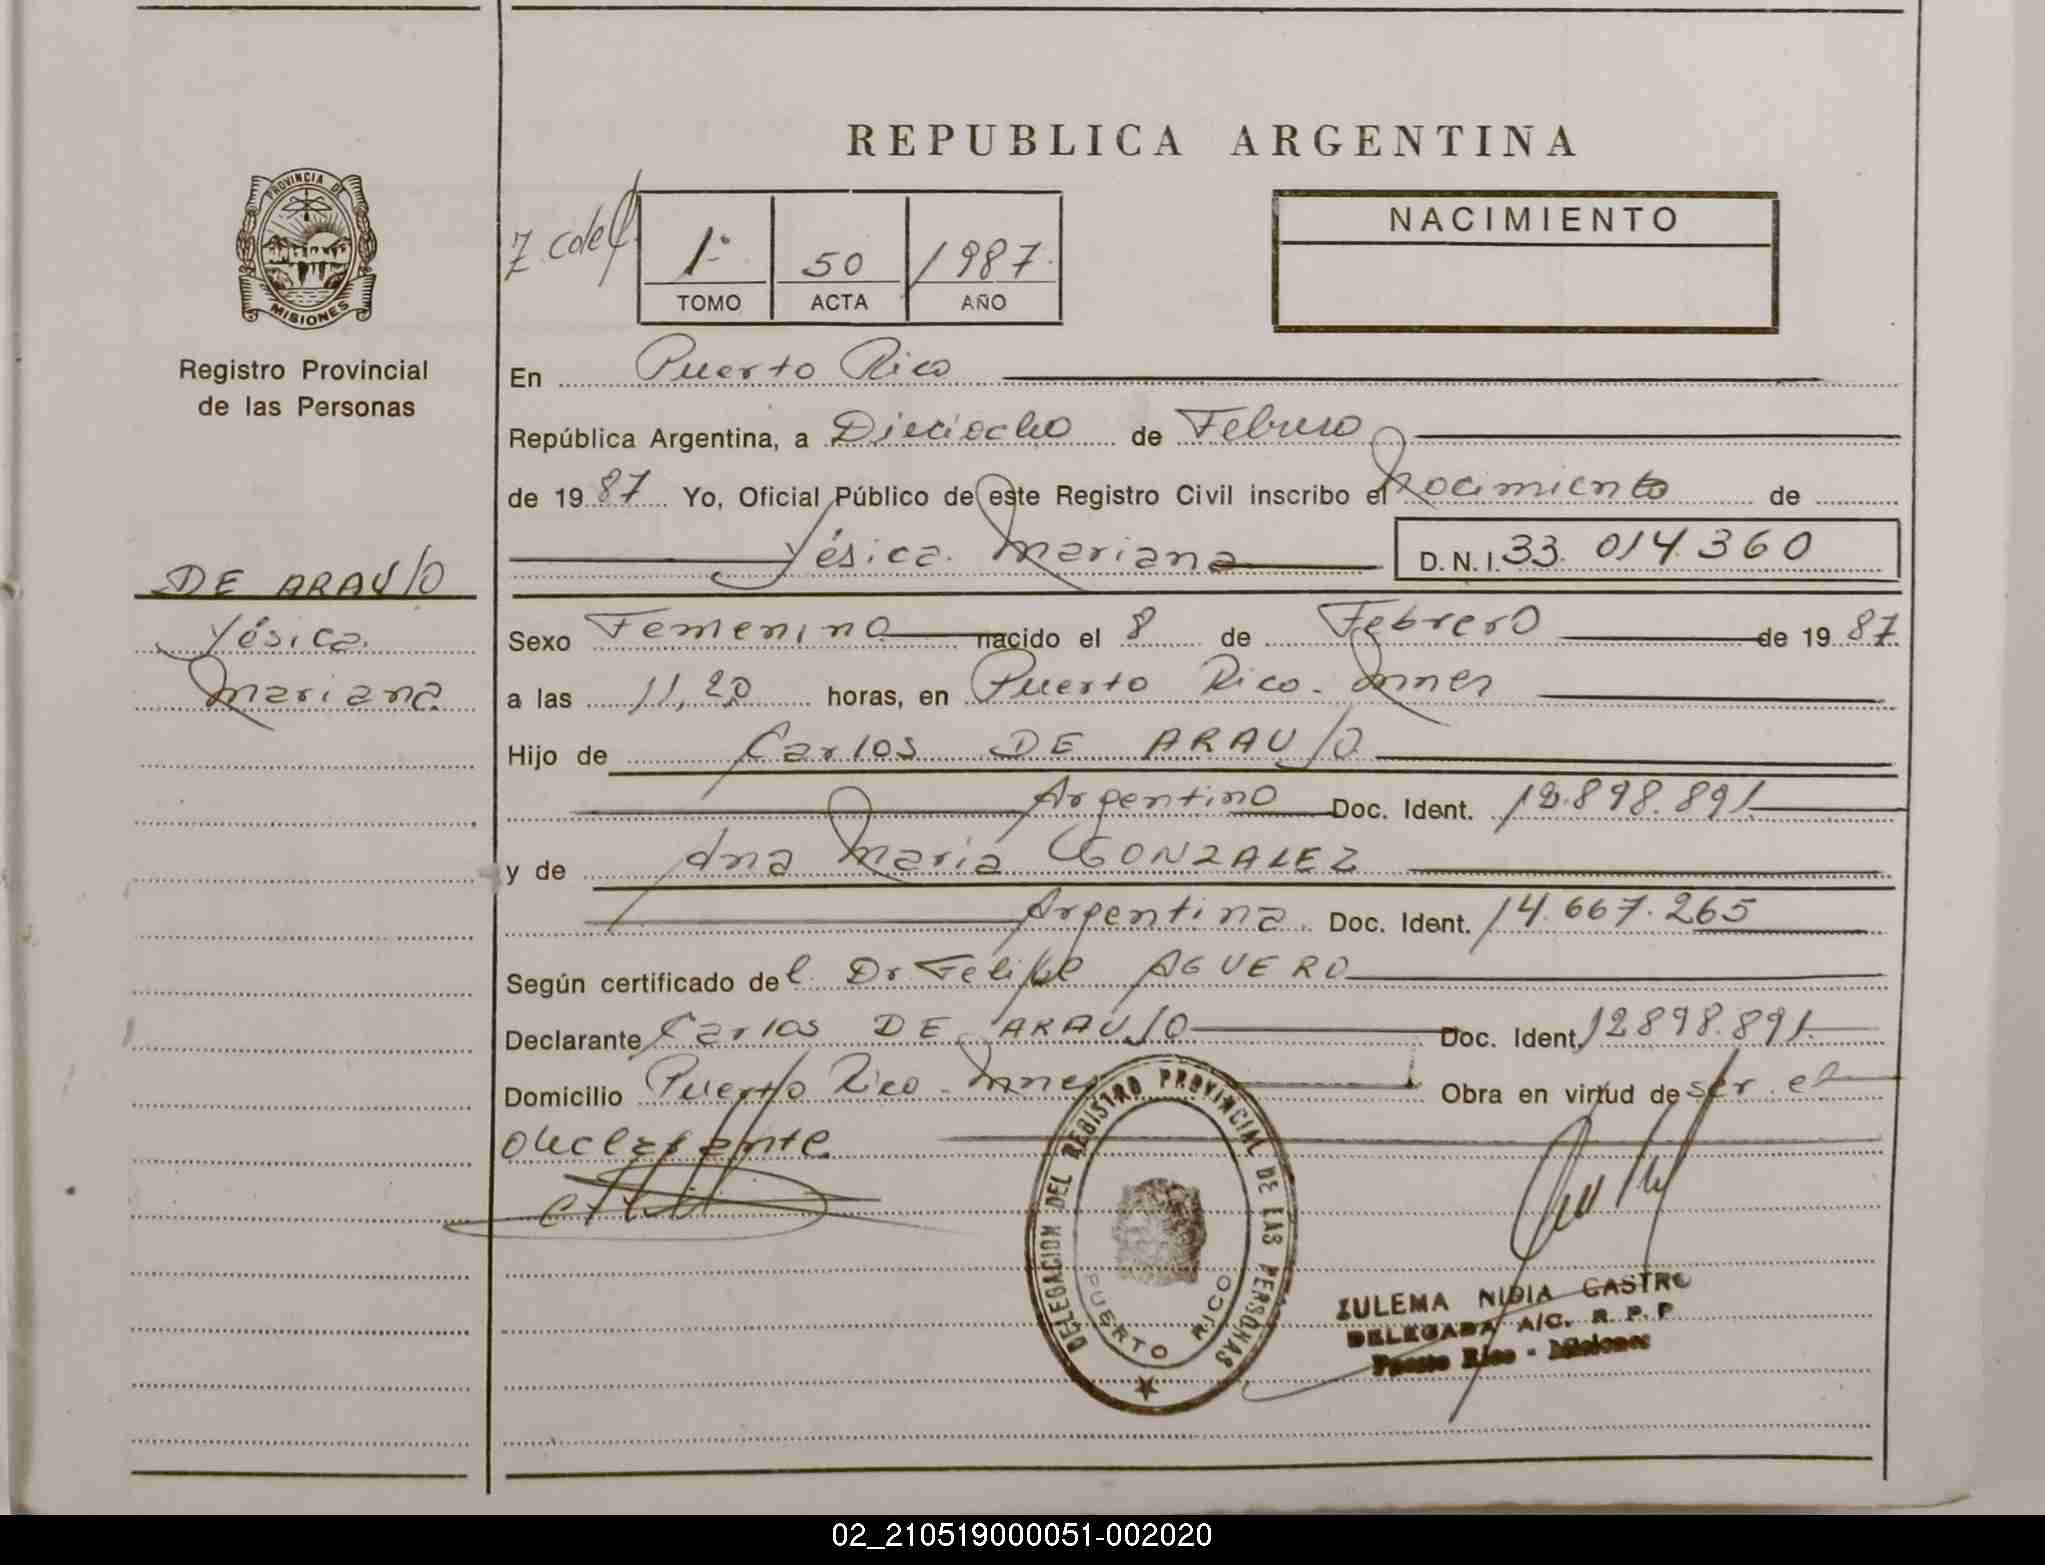 REPUBLICA ARGENTINA
PROVINCIA DE
MISIONES
Registro Provincial
de las Personas
DE ARAUJO
Yésica
Mariana
1º 50 1987
TOMO ACTA AÑO
NACIMIENTO
En Puerto Rico
República Argentina, a Dieciocho de Febrero
de 1987 Yo, Oficial Público de este Registro Civil inscribo el Nacimiento de
Yésica Mariana D.N.I. 33.014.360
Sexo Femenino nacido el 8 de Febrero de 1987
a las 11,20 horas, en Puerto Rico - Mnes
Hijo de Carlos DE ARAUJO
Argentino Doc. Ident. 12.898.891
y de Ana Maria GONZALEZ
Argentina Doc. Ident. 14.667.265
Según certificado del Dr Felipe AGUERO
Declarante Carlos DE ARAUJO Doc. Ident. 12898.891
Domicilio Puerto Rico - Mnes Obra en virtud de ser el
declarante.
DELEGACION DEL REGISTRO PROVINCIAL DE LAS PERSONAS
PUERTO RICO
ZULEMA NIDIA CASTRO
DELEGADA A/C. R. P. P
Puerto Rico - Misiones
02_210519000051-002020